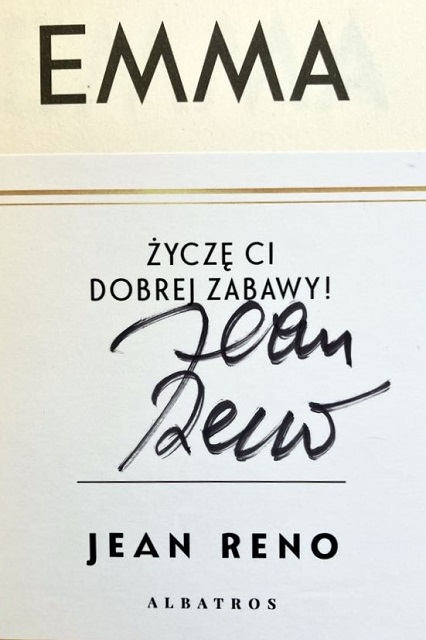 EMMA
ŻYCZĘ CI
DOBREJ ZABAWY!
Jean
Reno
JEAN RENO
ALBATROS